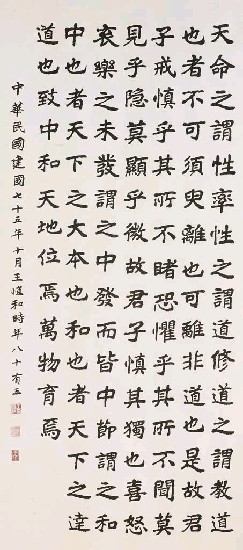 天命之謂性率性之謂道修道之謂教道
也者不可須臾離也可離非道也是故君
子戒慎乎其所不睹恐懼乎其所不聞莫
見乎隐莫顯乎微故君子慎其獨也喜怒
哀樂之未發謂之中發而皆中節謂之和
中也者天下之大本也和也者天下之達
道也致中和天地位焉萬物育焉
中華民國建國七十五年十月王愷和時年八十有五